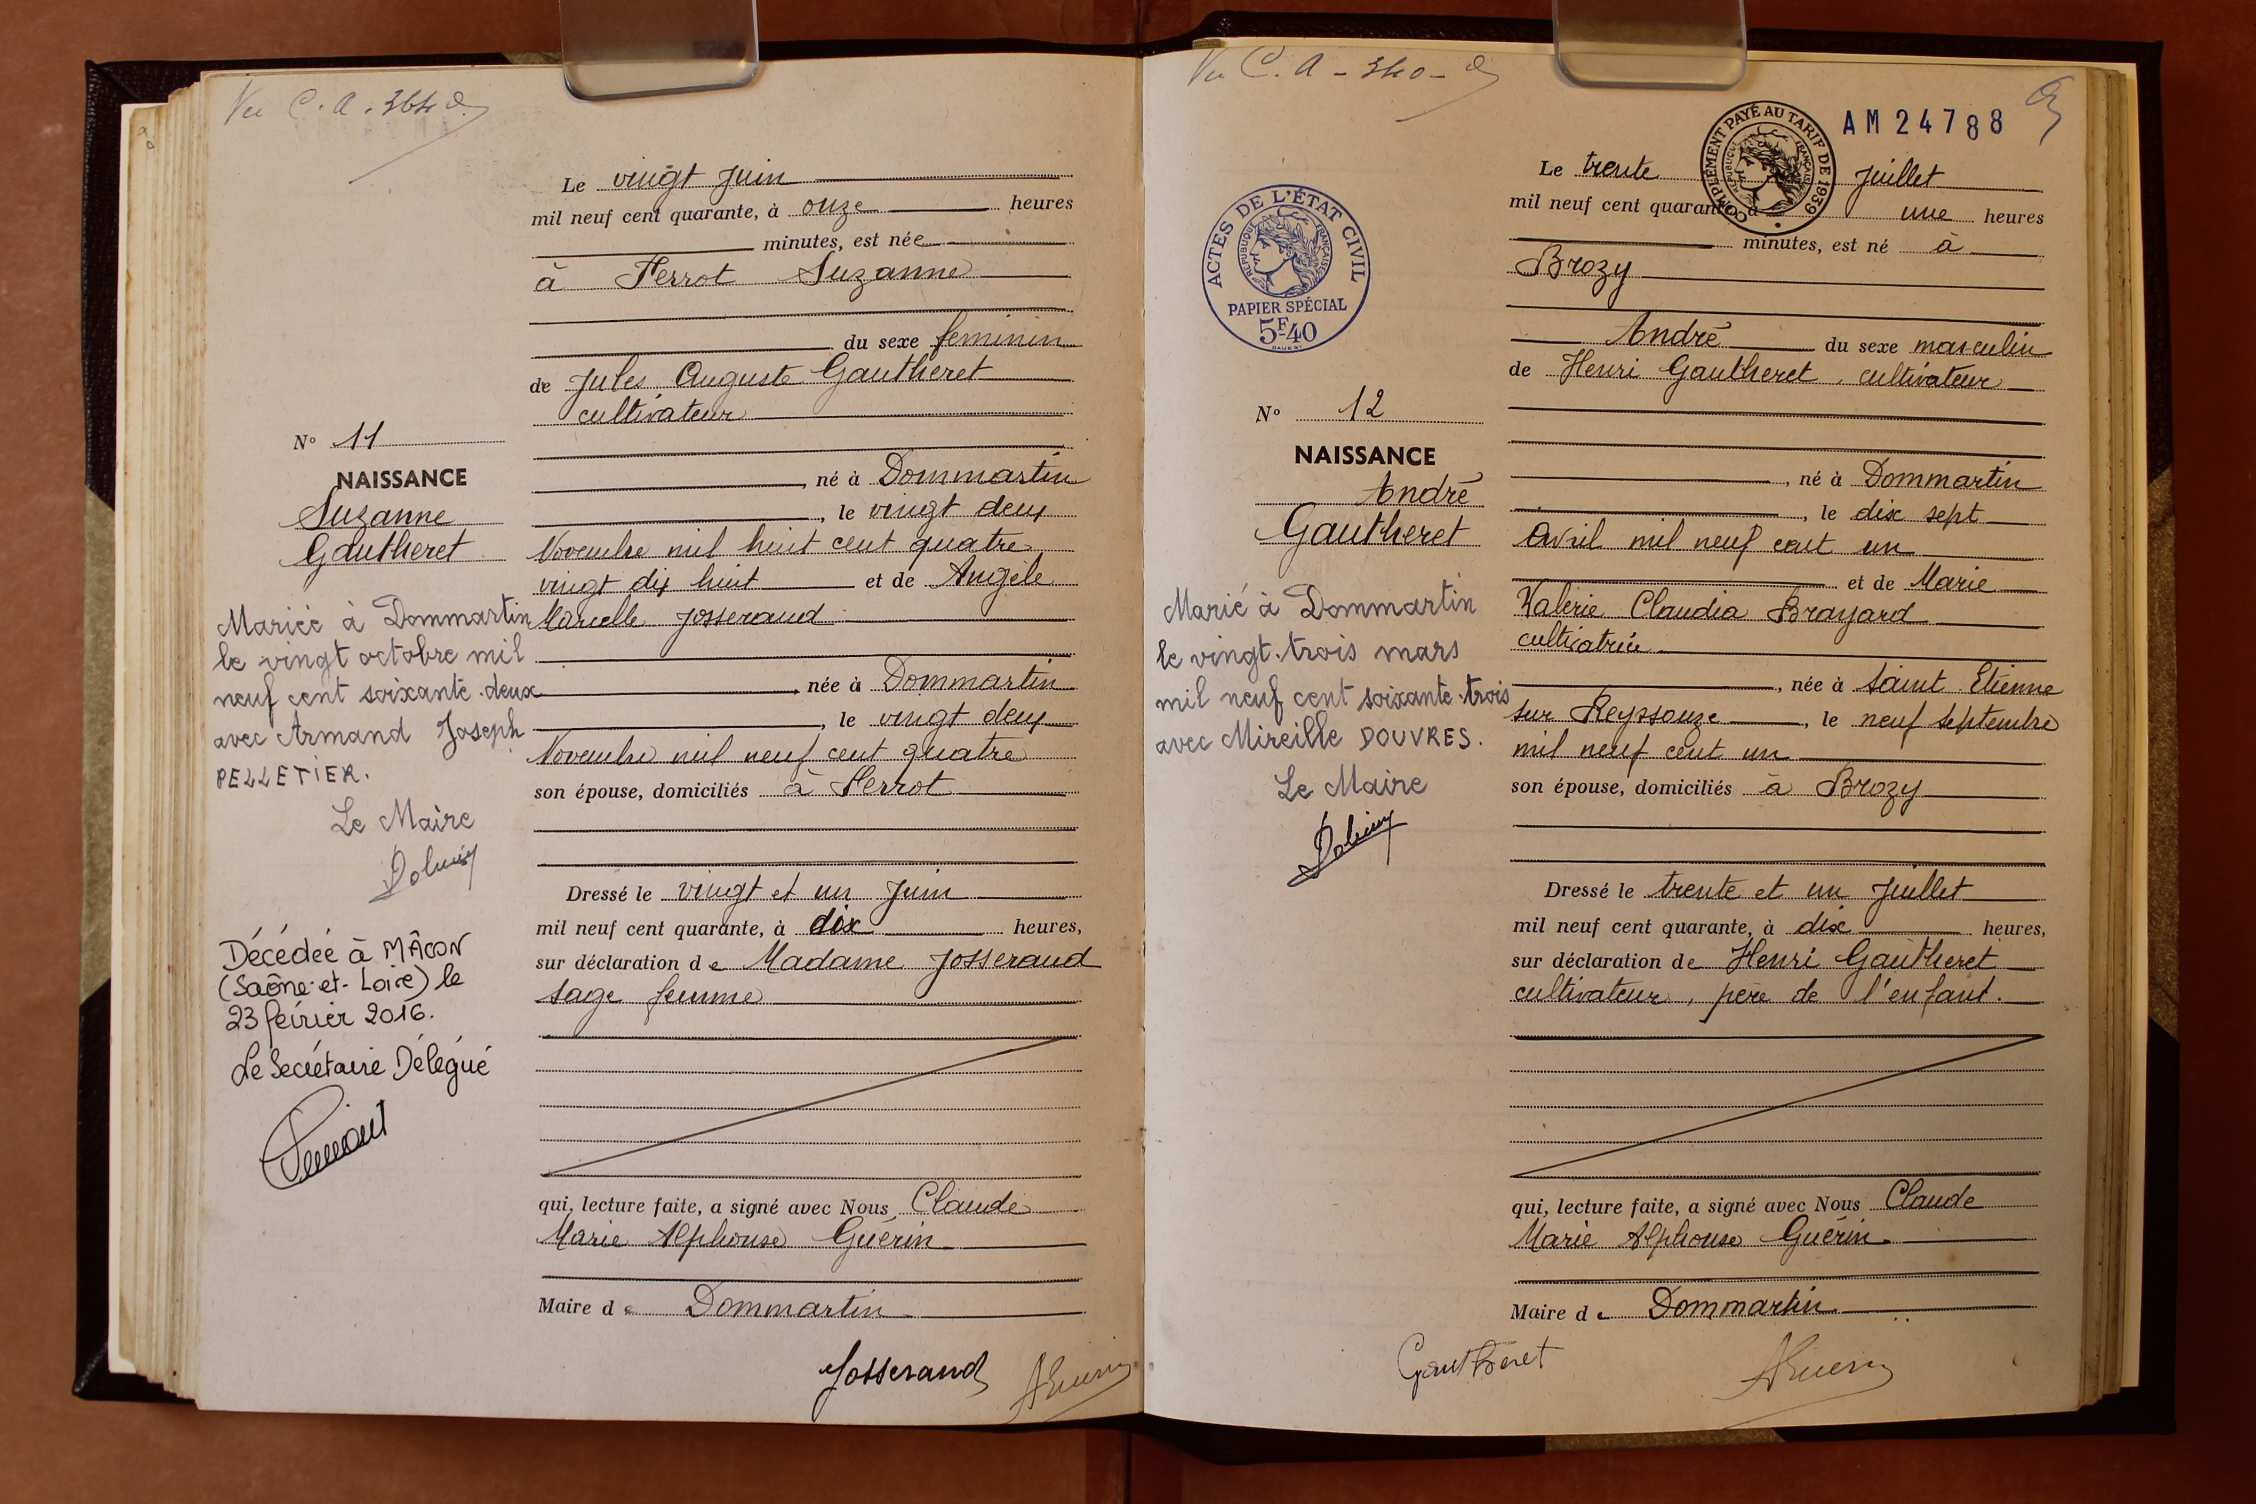 Vu C. A. 364
Le vingt Juin
mil neuf cent quarante, à onze heures
minutes, est née
à Ferrot Suzanne
du sexe feminin
de Jules Auguste Gautheret
cultivateur
né à Dommartin
, le vingt deux
Novembre mil huit cent quatre
vingt dix huit et de Angèle
Marcelle Josserand
née à Dommartin
, le vingt deux
Novembre mil neuf cent quatre
son épouse, domiciliés à Ferrot
Dressé le vingt et un Juin
mil neuf cent quarante, à dix heures,
sur déclaration de Madame Josserand
sage femme
qui, lecture faite, a signé avec Nous Claude
Marie Alphonse Guérin
Maire de Dommartin
Josserand AGuerin
N° 11
NAISSANCE
Suzanne
Gautheret
Mariée à Dommartin
le vingt octobre mil
neuf cent soixante-deux
avec Armand Joseph
PELLETIER.
Le Maire
Décédée à MÂCON
(Saône-et-Loire) le
23 février 2016.
Le Secrétaire Délégué
Vu C. A - 340 -
AM 24788
COMPLÉMENT PAYÉ AU TARIF DE 1939
REPUBLIQUE FRANÇAISE
ACTES DE L'ÉTAT CIVIL
REPUBLIQUE FRANÇAISE
PAPIER SPÉCIAL
5F40
Le trente Juillet
mil neuf cent quarante, à une heures
minutes, est né à
Brozy
André du sexe masculin
de Henri Gautheret, cultivateur
, né à Dommartin
, le dix sept
Avril mil neuf cent un
et de Marie
Valérie Claudia Brayard
cultivatrice
, née à Saint Etienne
sur Reyssouze, le neuf septembre
mil neuf cent un
son épouse, domiciliés à Brozy
Dressé le trente et un Juillet
mil neuf cent quarante, à dix heures,
sur déclaration de Henri Gautheret
cultivateur, père de l'enfant.
qui, lecture faite, a signé avec Nous Claude
Marie Alphonse Guérin
Maire de Dommartin
Gautheret AGuerin
N° 12
NAISSANCE
André
Gautheret
Marié à Dommartin
le vingt-trois mars
mil neuf cent soixante-trois
avec Mireille DOUVRES.
Le Maire